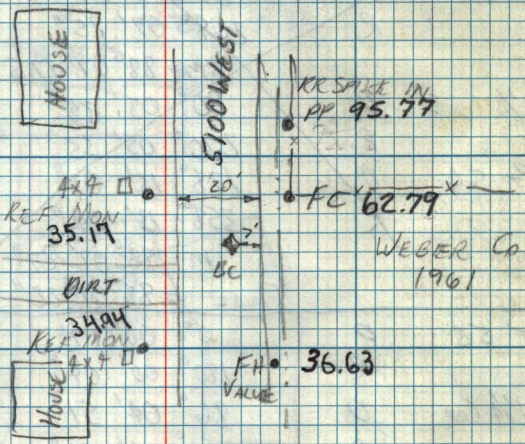 HOUSE
5100 WEST
RR SPIKE IN
PP 95.77
4x4
20'
FC 62.79
REF MON
35.17
7'
WEBER Co
1961
BC
DIRT
34.94
REF MON
4x4
FH 36.63
VALVE
HOUSE